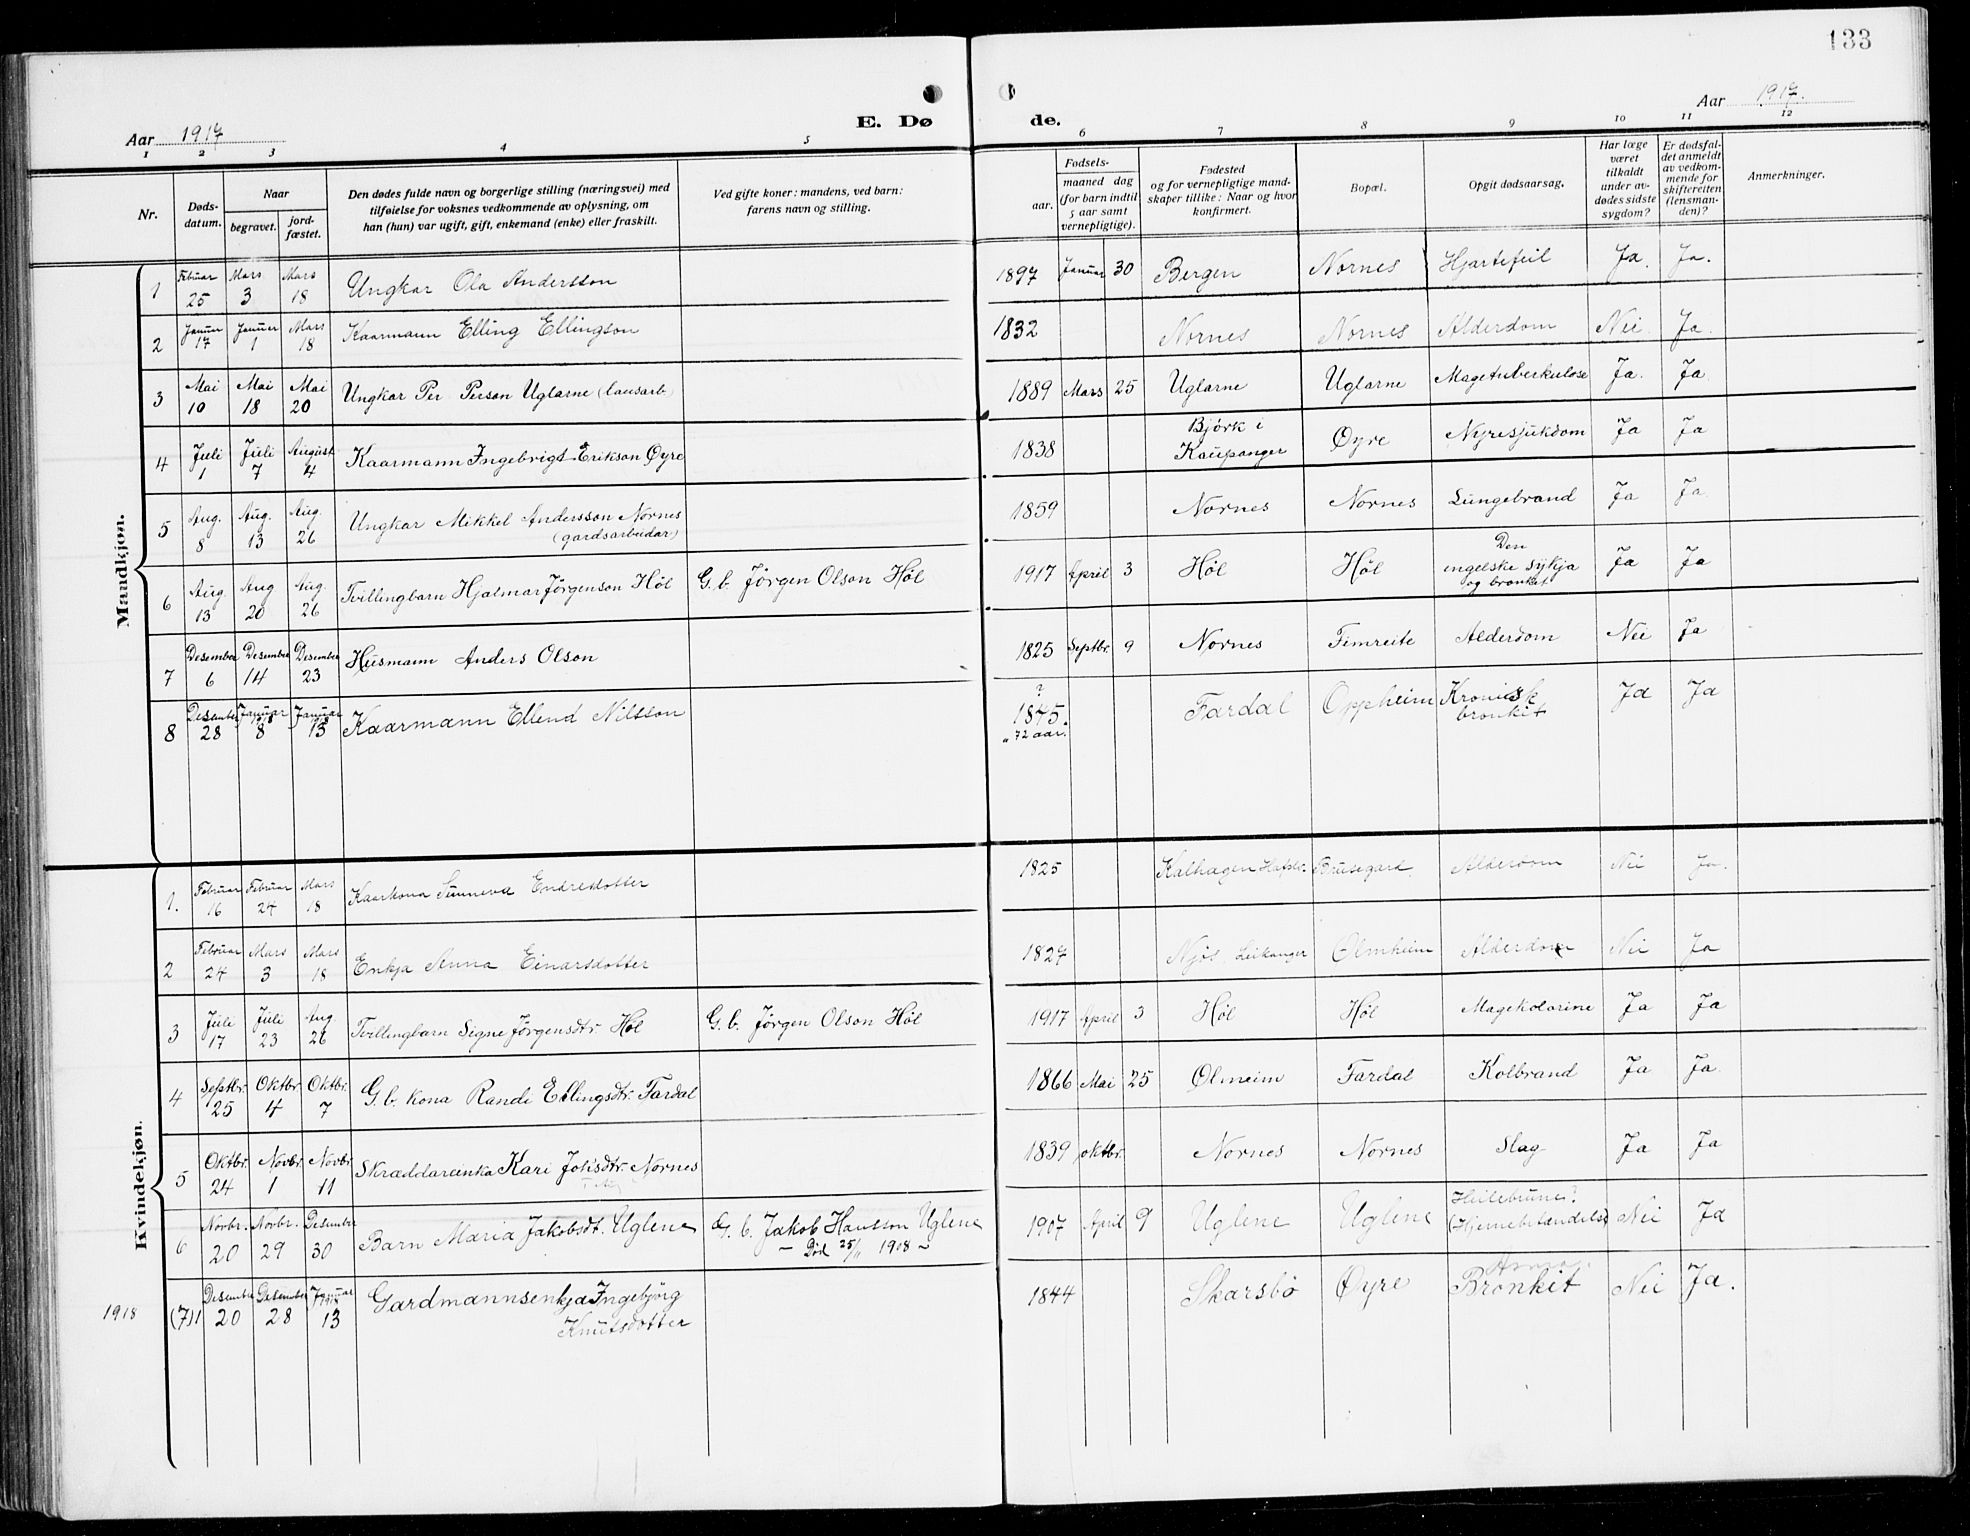 133
Aar 1917
E. Dø
de.
Aar 1917.
1 2 3 4 5 6 7 8 9 10 11 12
Nr.
Døds-
datum.
Naar
begravet.
jord-
fæstet.
Den dødes fulde navn og borgerlige stilling (næringsvei) med
tilføielse for voksnes vedkommende av oplysning, om
han (hun) var ugift, gift, enkemand (enke) eller fraskilt.
Ved gifte koner: mandens, ved barn:
farens navn og stilling.
Fødsels-
aar.
maaned dag
(for barn indtil
5 aar samt
vernepligtige).
Fødested
og for vernepligtige mand-
skaper tillike: Naar og hvor
konfirmert.
Bopæl.
Opgit dødsaarsag.
Har læge
været
tilkaldt
under av-
dødes sidste
sygdom?
Er dødsfal-
det anmeldt
av vedkom-
mende for
skifteretten
(lensman-
den)?
Anmerkninger.
Mandkjøn.
1 Februar 25 Mars 3 Mars 18 Ungkar Ola Andersson 1897 Januar 30 Bergen Nornes Hjartefeil Ja. Ja.
2 Januer 17 Januer 1 Mars 18 Kaarmann Elling Ellingson 1832 Nornes Nornes Alderdom Nei. Ja.
3 Mai 10 Mai 18 Mai 20 Ungkar Per Person Uglarne (lausarb.) 1889 Mars 25 Uglarne Uglarne Magetuberkulose Ja. Ja
4 Juli 1 Juli 7 August 4 Kaarmann Ingebrigt Erikson Øyre 1838 Bjørk i Kaupanger Øyre Nyresjukdom Ja Ja
5 Aug. 8 Aug. 13 Aug. 26 Ungkar Mikkel Andersson Nornes (gardsarbeidar) 1859 Nornes Nornes Lungebrand Ja Ja
6 Aug. 13 Aug 20 Aug. 26 Tvillingbarn Hjalmar Jørgenson Høl G.b. Jørgen Olson Høl 1917 April 3 Høl Høl Den engelske sykja og bronkit Ja Ja
7 Desember 6 Desember 14 Desember 23 Husmann Anders Olson 1825 Septbr. 9 Nornes Fimreite Alderdom Nei Ja
8 Desember 28 Januar 1918 8 Januar 1918 13 Kaarmann Ellend Nilsson ? 1845. "72 aar. Fardal Oppheim Kronisk bronkit Ja Ja
Kvindekjøn.
1. Februar 16 Februar 24 Mars 18 Kaarkona Sunneva Endresdotter 1825 Kalhagen Hafslo. Brusegard Alderdom Nei Ja.
2 Februar 24 Mars 3 Mars 18 Enkja Anna Einarsdotter 1827 Njøs Leikanger Olmheim Alderdom Nei Ja
3 Juli 17 Juli 23 Aug 26 Tvillingbarn Signe Jørgensdtr. Høl G.b. Jørgen Olson Høl 1917 April 3 Høl Høl Magekolorine Ja Ja
4 Septbr. 25 Oktbr 4 Oktbr. 7 G.b. kona Randi Ellingsdtr. Fardal 1866 Mai 25 Ølmeim Fardal Kolbrand Ja Ja.
5 Oktbr. 24 Novbr. 1 Novbr. 11 Skræddareinka Kari Johsdtr. Nornes 1839 oktbr. Nornes Nornes Slag Ja Ja
6 Novbr. 20 Novbr. 29 Desember 30 Barn Maria Jakobsdt. Uglene G.b. Jakob Hansson Uglene – Død 25/11 1908 – 1907 April 9 Uglene Uglene Heilebrune? (Hjernebetændelse) Nei Ja
1918 (7)1 Desember 20 Desember 28 Januar 1918 13 Gardmannsenkja Ingebjörg Knutsdotter 1844 Skarsbø Øyre Bronkit Nei Ja.